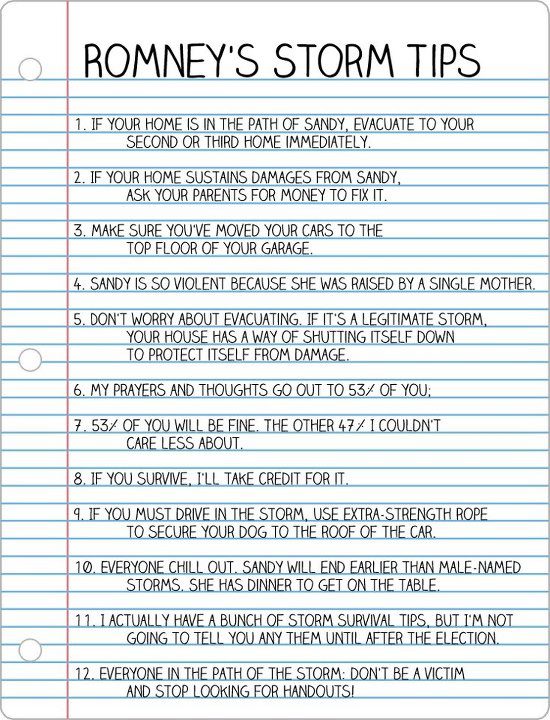 ROMNEY'S STORM TIPS
1. IF YOUR HOME IS IN THE PATH OF SANDY, EVACUATE TO YOUR
SECOND OR THIRD HOME IMMEDIATELY.
2. IF YOUR HOME SUSTAINS DAMAGES FROM SANDY,
ASK YOUR PARENTS FOR MONEY TO FIX IT.
3. MAKE SURE YOU'VE MOVED YOUR CARS TO THE
TOP FLOOR OF YOUR GARAGE.
4. SANDY IS SO VIOLENT BECAUSE SHE WAS RAISED BY A SINGLE MOTHER.
5. DON'T WORRY ABOUT EVACUATING. IF IT'S A LEGITIMATE STORM,
YOUR HOUSE HAS A WAY OF SHUTTING ITSELF DOWN
TO PROTECT ITSELF FROM DAMAGE.
6. MY PRAYERS AND THOUGHTS GO OUT TO 53% OF YOU;
7. 53% OF YOU WILL BE FINE. THE OTHER 47% I COULDN'T
CARE LESS ABOUT.
8. IF YOU SURVIVE, I'LL TAKE CREDIT FOR IT.
9. IF YOU MUST DRIVE IN THE STORM, USE EXTRA-STRENGTH ROPE
TO SECURE YOUR DOG TO THE ROOF OF THE CAR.
10. EVERYONE CHILL OUT. SANDY WILL END EARLIER THAN MALE-NAMED
STORMS. SHE HAS DINNER TO GET ON THE TABLE.
11. I ACTUALLY HAVE A BUNCH OF STORM SURVIVAL TIPS, BUT I'M NOT
GOING TO TELL YOU ANY THEM UNTIL AFTER THE ELECTION.
12. EVERYONE IN THE PATH OF THE STORM: DON'T BE A VICTIM
AND STOP LOOKING FOR HANDOUTS!